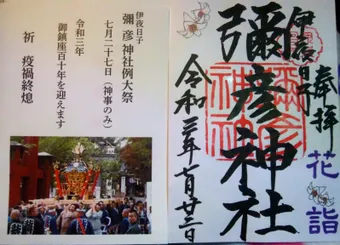 伊夜日子
彌彦神社例大祭
七月二十七日（神事のみ）
令和三年
御鎮座百十年を迎えます
祈 疫禍終熄
奉拝
花詣
伊夜日子
彌彦神社
令和三年七月廿三日